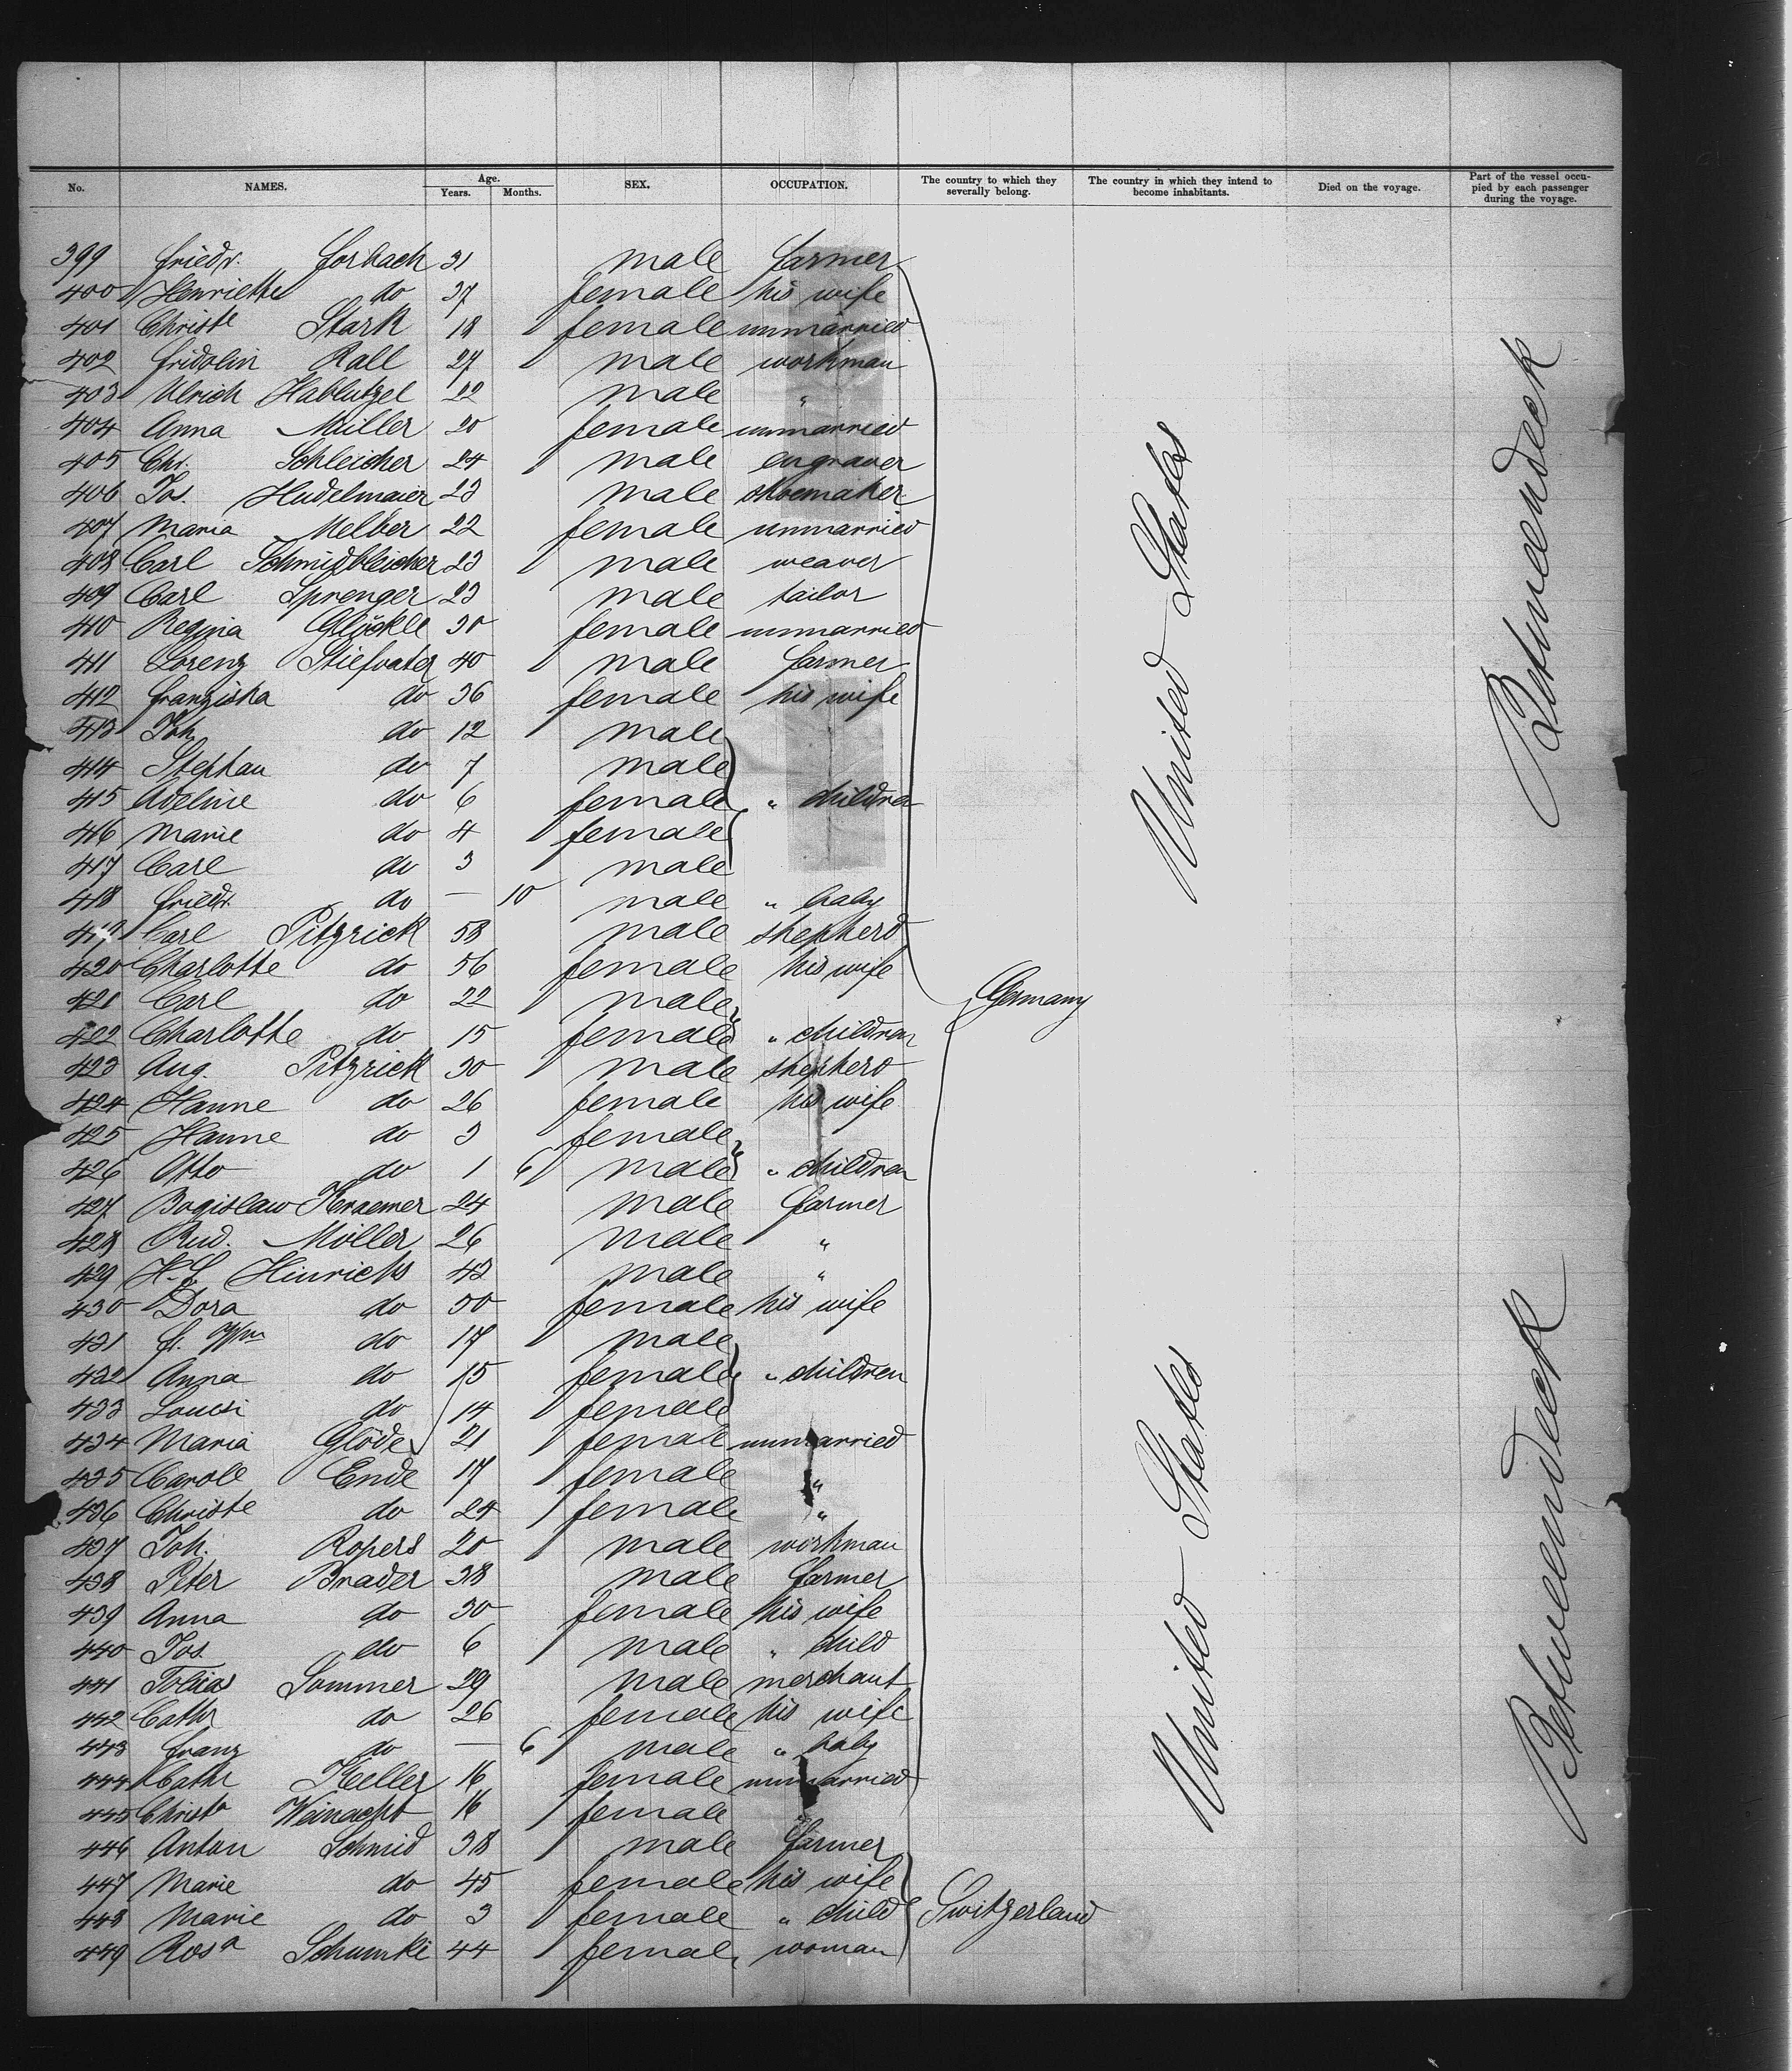 No. NAMES. Age. Years. Months. SEX. OCCUPATION. The country to which they severally belong. The country in which they intend to become inhabitants. Died on the voyage. Part of the vessel occupied by each passenger during the voyage.
399 Friedr. Forbach 31 male farmer
400 Henriette do 37 female his wife
401 Christe Stark 18 female unmarried
402 Fridolin Rall 27 male workman
403 Ulrich Hablutzel 22 male "
404 Anna Müller 20 female unmarried
405 Chr. Schleicher 24 male engraver
406 Jos. Hudelmaier 23 male shoemaker
407 Maria Melber 22 female unmarried
408 Carl Schmidbleicher 23 male weaver
409 Carl Sprenger 23 male tailor
410 Regina Glöckle 30 female unmarried
411 Lorenz Stiefvater 40 male farmer
412 Franziska do 36 female his wife
413 Joh. do 12 male
414 Stephan do 7 male
415 Adeline do 6 female " children
416 Marie do 4 female
417 Carl do 3 male
418 Friedr. do — 10 male " baby
419 Carl Pitzrick 58 male shepherd
420 Charlotte do 56 female his wife
421 Carl do 22 male Germany United States Betweendeck
422 Charlotte do 15 female " children
423 Aug. Pitzrick 30 male shepherd
424 Hanne do 26 female his wife
425 Hanne do 3 female
426 Otto do 1 6 male " children
427 Bogislaw Kraemer 24 male farmer
428 Rud. Möller 26 male "
429 H. F. Hinrichs 43 male "
430 Dora do 50 female his wife
431 F. Wm do 17 male
432 Anna do 15 female " children
433 Louisi do 14 female
434 Maria Glöde 21 female unmarried
435 Carole Ende 17 female "
436 Christe do 24 female "
437 Joh. Ropers 20 male workman
438 Peter Brader 38 male farmer
439 Anna do 30 female his wife
440 Jos. do 6 male " child
441 Tobias Sommer 29 male merchant
442 Cathr do 26 female his wife
443 Franz do — 6 male " baby
444 Cathr Keller 16 female unmarried
445 Christa Weinacht 16 female "
446 Anton Schmid 38 male farmer
447 Marie do 45 female his wife
448 Marie do 3 female " child Switzerland United States Betweendeck
449 Rosa Schumki 44 female woman